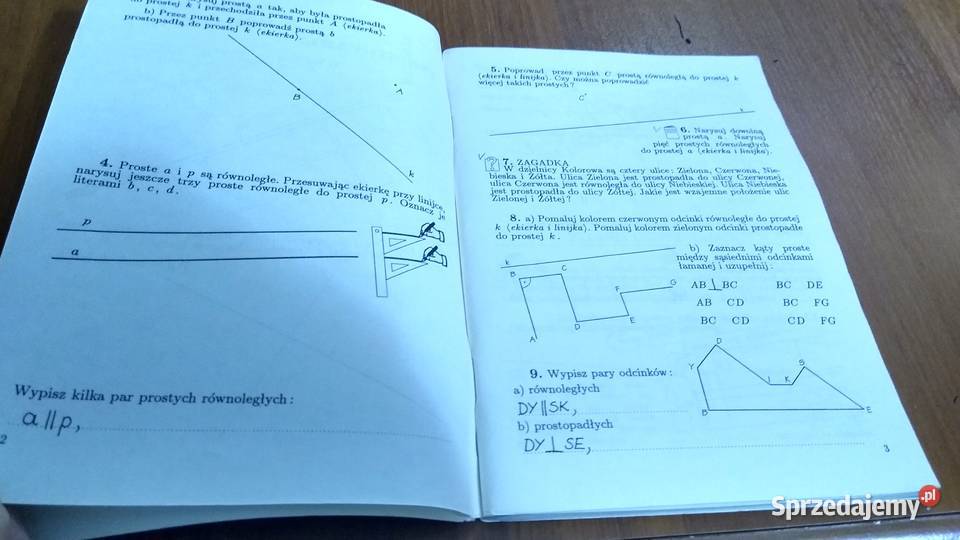 prostą a tak, aby była prostopadła
do prostej k i przechodziła przez punkt A (ekierka).
b) Przez punkt B poprowadź prostą b
prostopadłą do prostej k (ekierka).
B
A
k
4. Proste a i p są równoległe. Przesuwając ekierkę przy linijce,
narysuj jeszcze trzy proste równoległe do prostej p. Oznacz je
literami b, c, d.
p
a
Wypisz kilka par prostych równoległych:
a || p,
2
5. Poprowad przez punkt C prostą równoległą do prostej k
(ekierka i linijka). Czy można poprowadzić
więcej takich prostych?
C
k
6. Narysuj dowolną
prostą a. Narysuj
pięć prostych równoległych
do prostej a (ekierka i linijka).
7. ZAGADKA
W dzielnicy Kolorowa są cztery ulice: Zielona, Czerwona, Nie-
bieska i Żółta. Ulica Zielona jest prostopadła do ulicy Czerwonej,
ulica Czerwona jest równoległa do ulicy Niebieskiej. Ulica Niebieska
jest prostopadła do ulicy Żółtej. Jakie jest wzajemne położenie ulic
Zielonej i Żółtej?
8. a) Pomaluj kolorem czerwonym odcinki równoległe do prostej
k (ekierka i linijka). Pomaluj kolorem zielonym odcinki prostopadłe
do prostej k.
b) Zaznacz kąty proste
między sąsiednimi odcinkami
łamanej i uzupełnij:
k
B
C
F
G
D
E
A
AB ⊥ BC BC DE
AB CD BC FG
BC CD CD FG
9. Wypisz pary odcinków:
a) równoległych
DY || SK,
b) prostopadłych
DY ⊥ SE,
D
Y
S
K
E
3
Sprzedajemy.pl